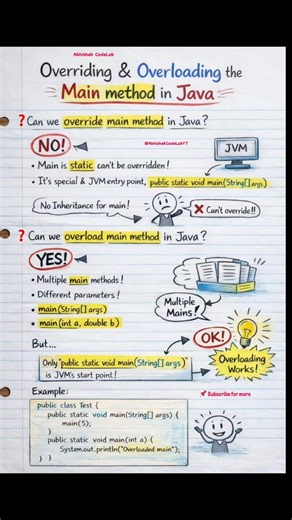 Abhishek CodeLab
Overriding & Overloading the
Main method in Java
@AbhishekCodeLabYT
? Can we override main method in Java?
NO!
JVM
• Main is static can't be overridden!
• It's special & JVM entry point, public static void main(String[] args)
No Inheritance for main!
X Can't override!!
? Can we overload main method in Java?
YES!
• Multiple main methods!
• Different parameters!
• main(String[] args)
• main(int a, double b)
Multiple
Mains!
But...
OK!
Only "public static void main(String[] args)"
is JVM's start point!
Overloading
Works!
Example:
Subscribe for more
public class Test {
public static void main(String[] args) {
main(5);
}
public static void main(int a) {
System.out.println("Overloaded main");
}
}